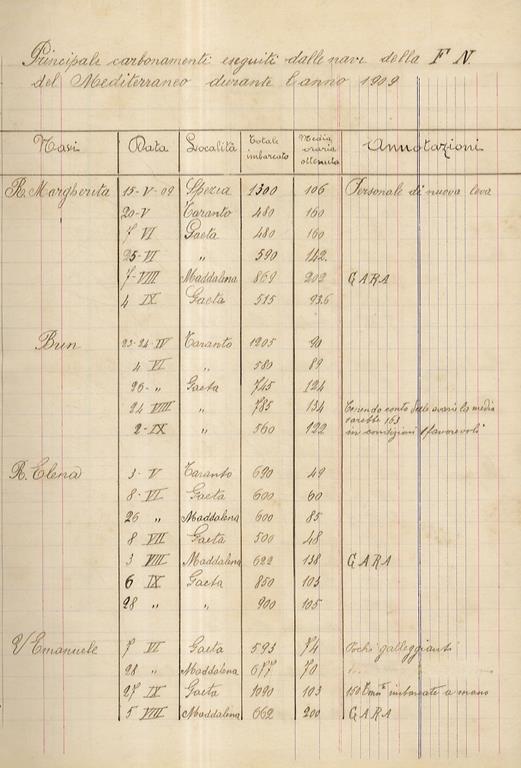 Principale carbonamenti eseguiti dalle navi della F N.
del Mediterraneo durante l'anno 1909
Navi Data Località Totale imbarcato Media oraria ottenuta Annotazioni
R. Margherita 15-V-09 Spezia 1300 106 Personale di nuova leva
20-V Taranto 480 160
7 VI Gaeta 480 160
25-VI " 590 142
7-VIII Maddalena 869 202 GARA
4 IX Gaeta 515 93.6
Brin 23-24-IV Taranto 1205 90
4 VI " 580 89
26- " Gaeta 745 124
24 VIII " 785 134 Tenendo conto delle avarie la media
sarebbe 163
2-IX " 560 122 in condizioni sfavorevoli
R. Elena 3-V Taranto 690 49
8-VI Gaeta 600 60
26 " Maddalena 600 85
8 VII Gaeta 500 48
3 VIII Maddalena 622 138 GARA
6 IX Gaeta 850 103
28 " " 900 105
V Emanuele 7 VI Gaeta 593 74 Pochi galleggianti
28 " Maddalena 677 70
27 IX Gaeta 1090 103 150 imbarcate a mano
5 VIII Maddalena 662 200 GARA